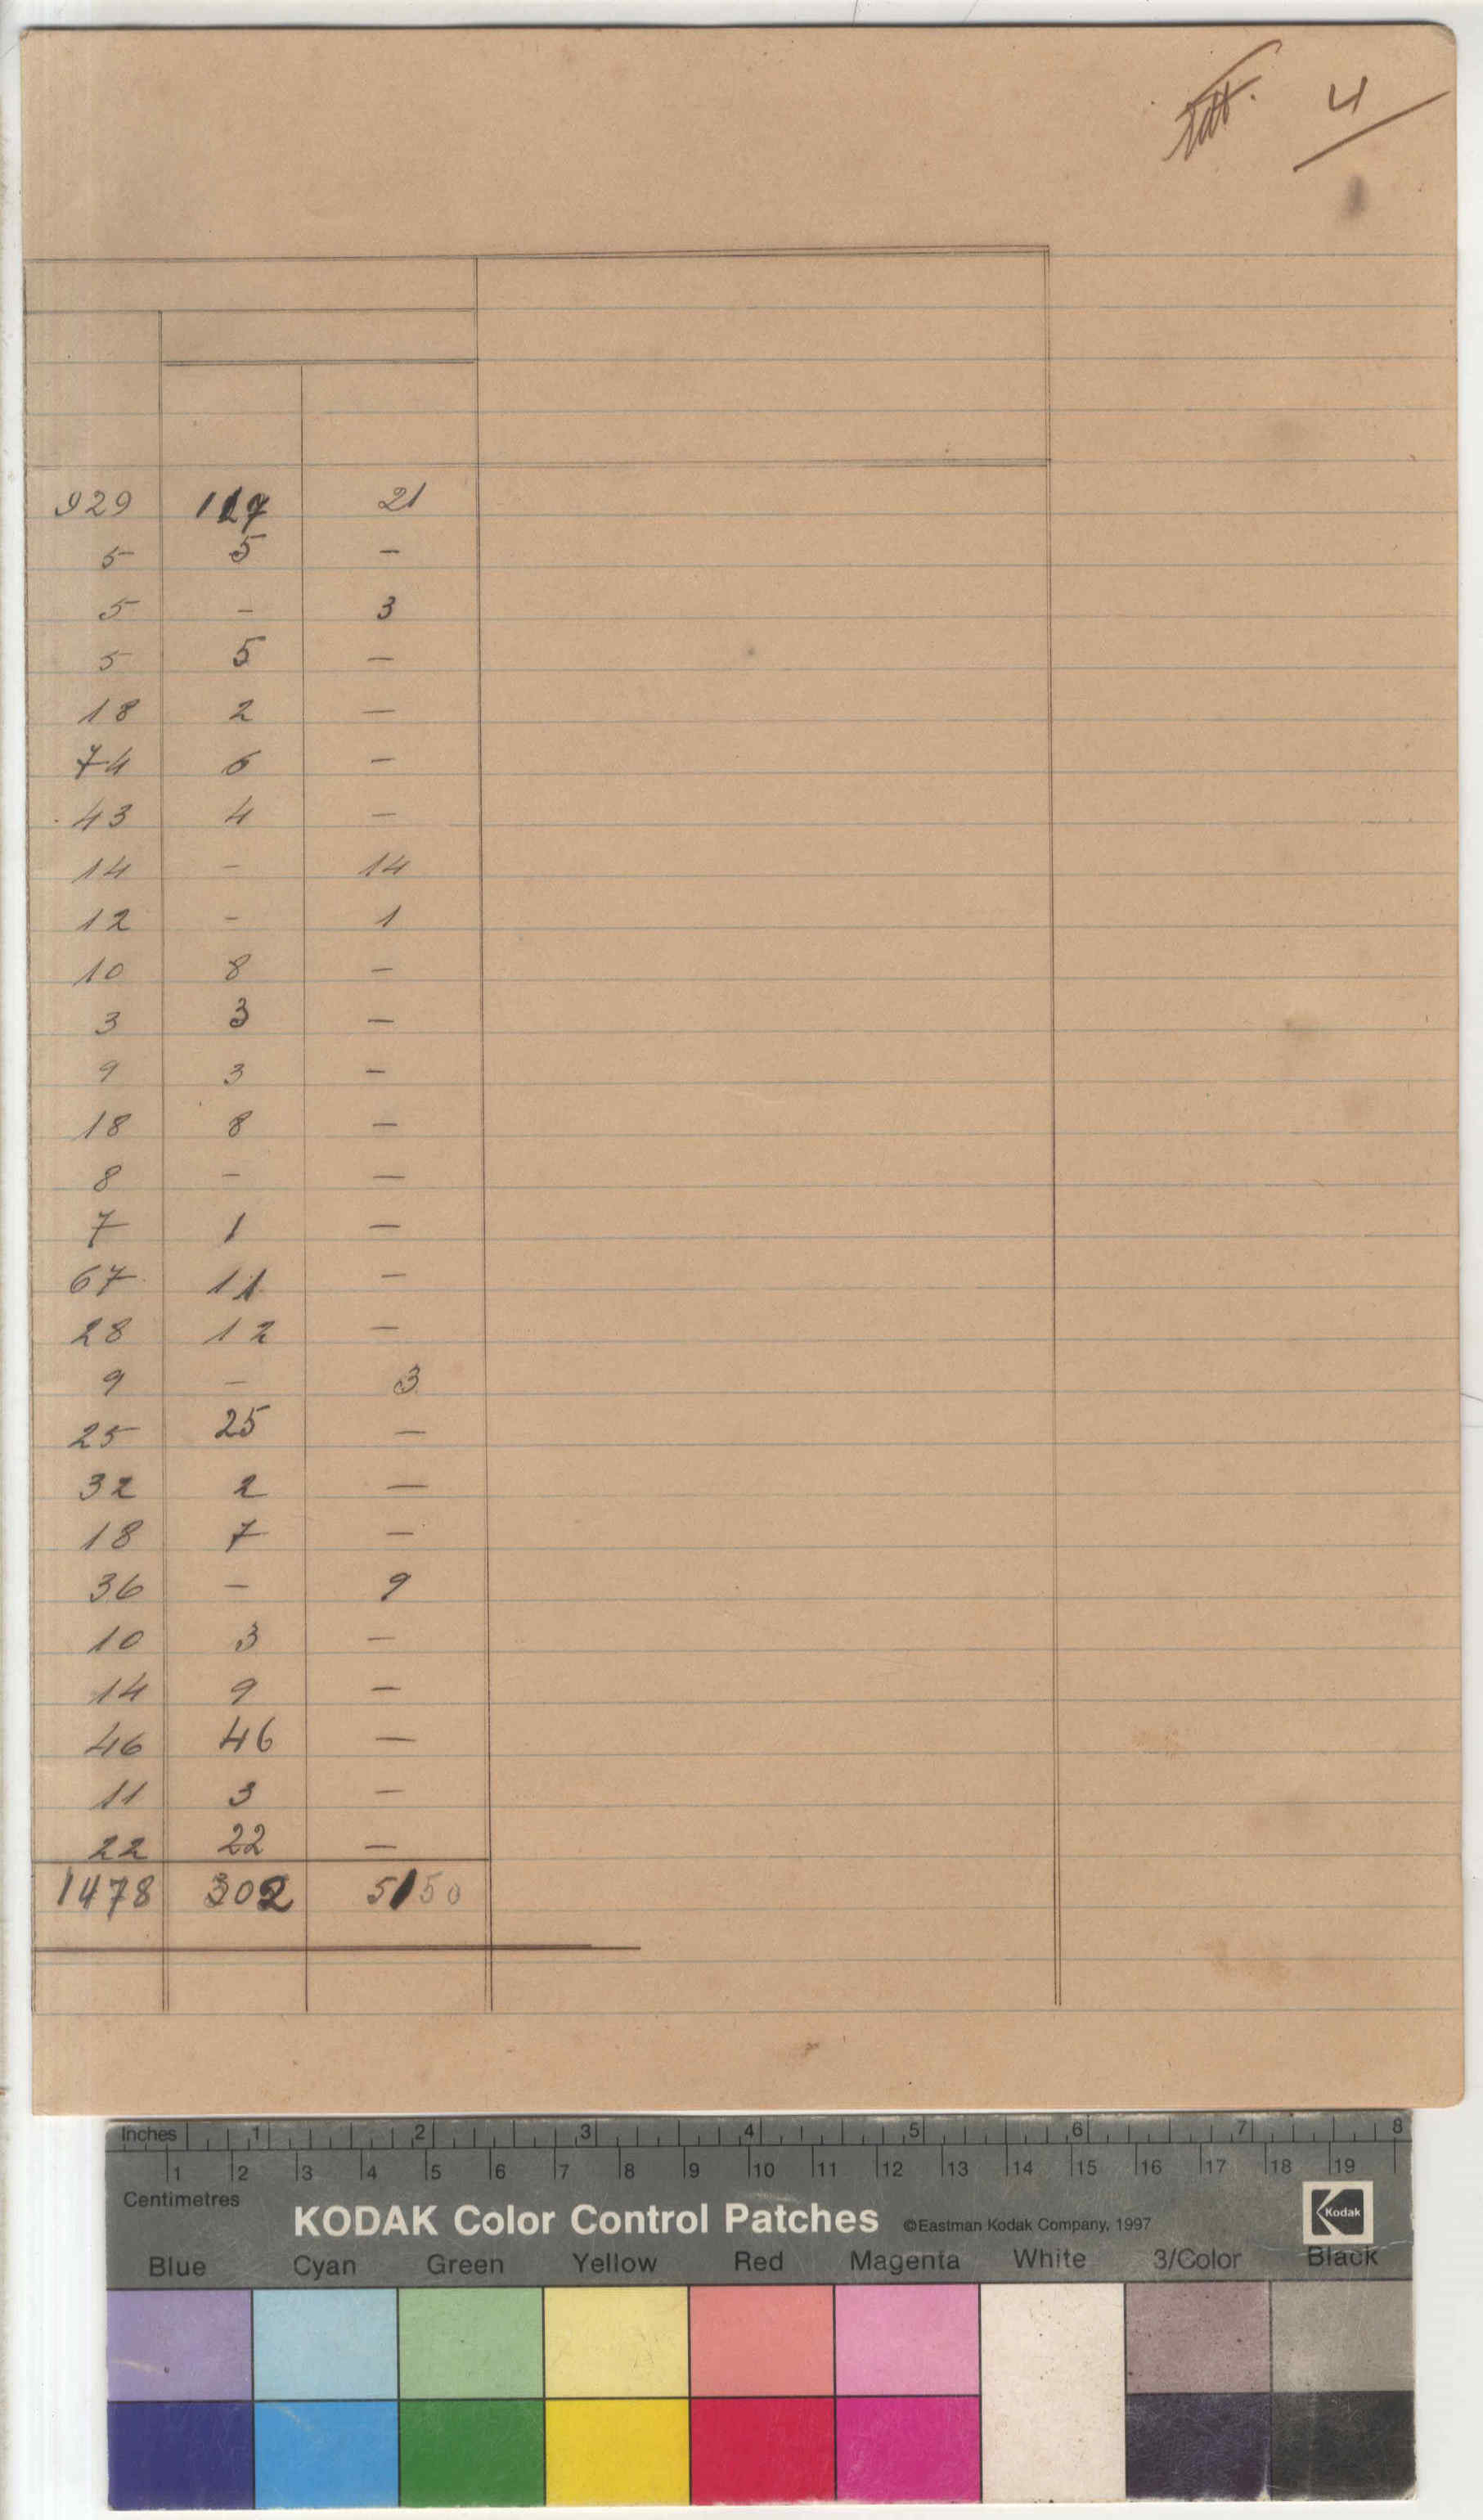 4
929 117 21
5 5 —
5 — 3
5 5 —
18 2 —
74 6 —
43 4 —
14 — 14
12 — 1
10 8 —
3 3 —
9 3 —
18 8 —
8 — —
7 1 —
67 11 —
28 12 —
9 — 3
25 25 —
32 2 —
18 7 —
36 — 9
10 3 —
14 9 —
46 46 —
11 3 —
22 22 —
1478 302 51 50
Inches 1 2 3 4 5 6 7 8
1 2 3 4 5 6 7 8 9 10 11 12 13 14 15 16 17 18 19
Centimetres
KODAK Color Control Patches ©Eastman Kodak Company, 1997 Kodak
Blue Cyan Green Yellow Red Magenta White 3/Color Black